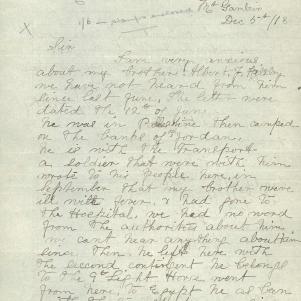 Mt Gambier
1/6 - stamps enclosed
Dec 5th/18
x
Sir
I am very anxious
about my brother Albert F
we have not heard from him
since last June, The letter were
dated the 12th of June,
he was in Palestine then camped
on the banks of Jordan,
he is with the Transport
a soldier that were with him
wrote to his people here, in
September that my brother were
ill with fever, & had gone to
the Hospital, we had no word
from the authorities about him,
we can't hear anything about him
since then, he left here with
the second contingent he belongs
to the 9th Light Horse went
from here to Egypt he as been